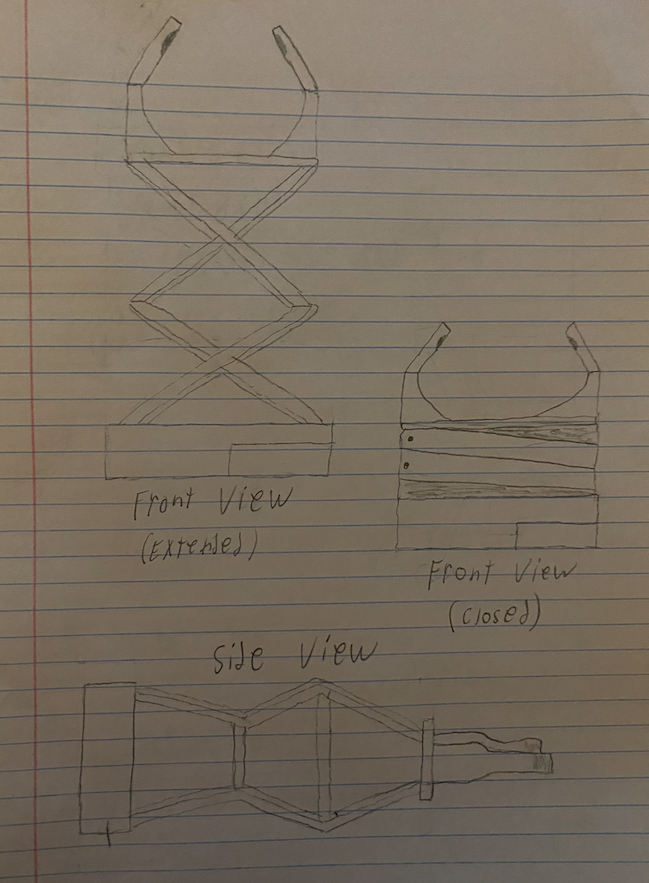 Front View
(Extended)
Front View
(Closed)
Side View